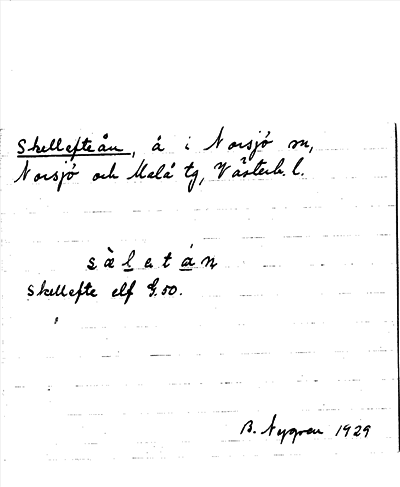 Skellefteån, å i Norsjö sn,
Norsjö och Malå tg, Västerb. l.
sàletán
Skellefte elf G.50.
B. Nygren 1929